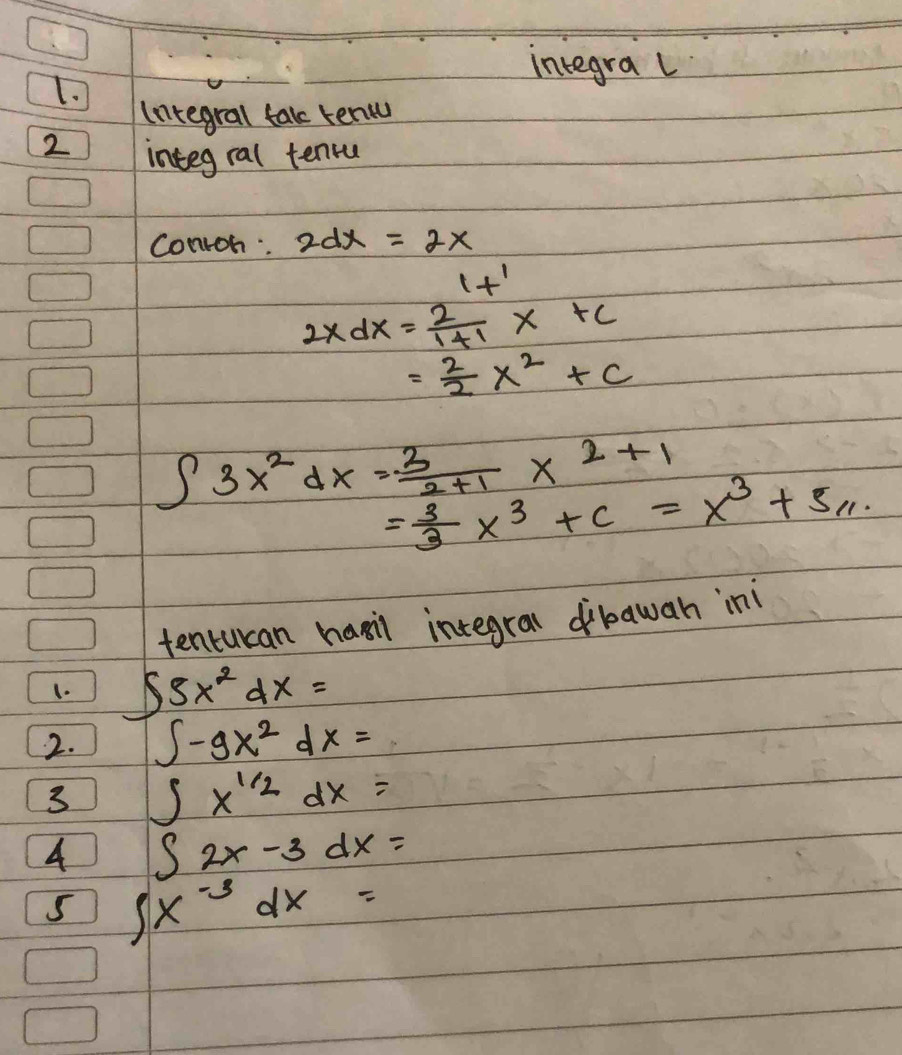 integral
1. Integral tak tentu
2 integral tentu
Contoh : 2dx = 2x
1+1
2x dx = 2/1+1 x +c
= 2/2 x² + c
∫ 3x² dx = 3/2+1 x 2+1
= 3/3 x³ + c = x³ + 5 //.
tentukan hasil integral dibawah ini
1. ∫5x² dx =
2. ∫-9x² dx =
3 ∫ x^1/2 dx =
4 ∫ 2x -3 dx =
5 ∫x^-3 dx =